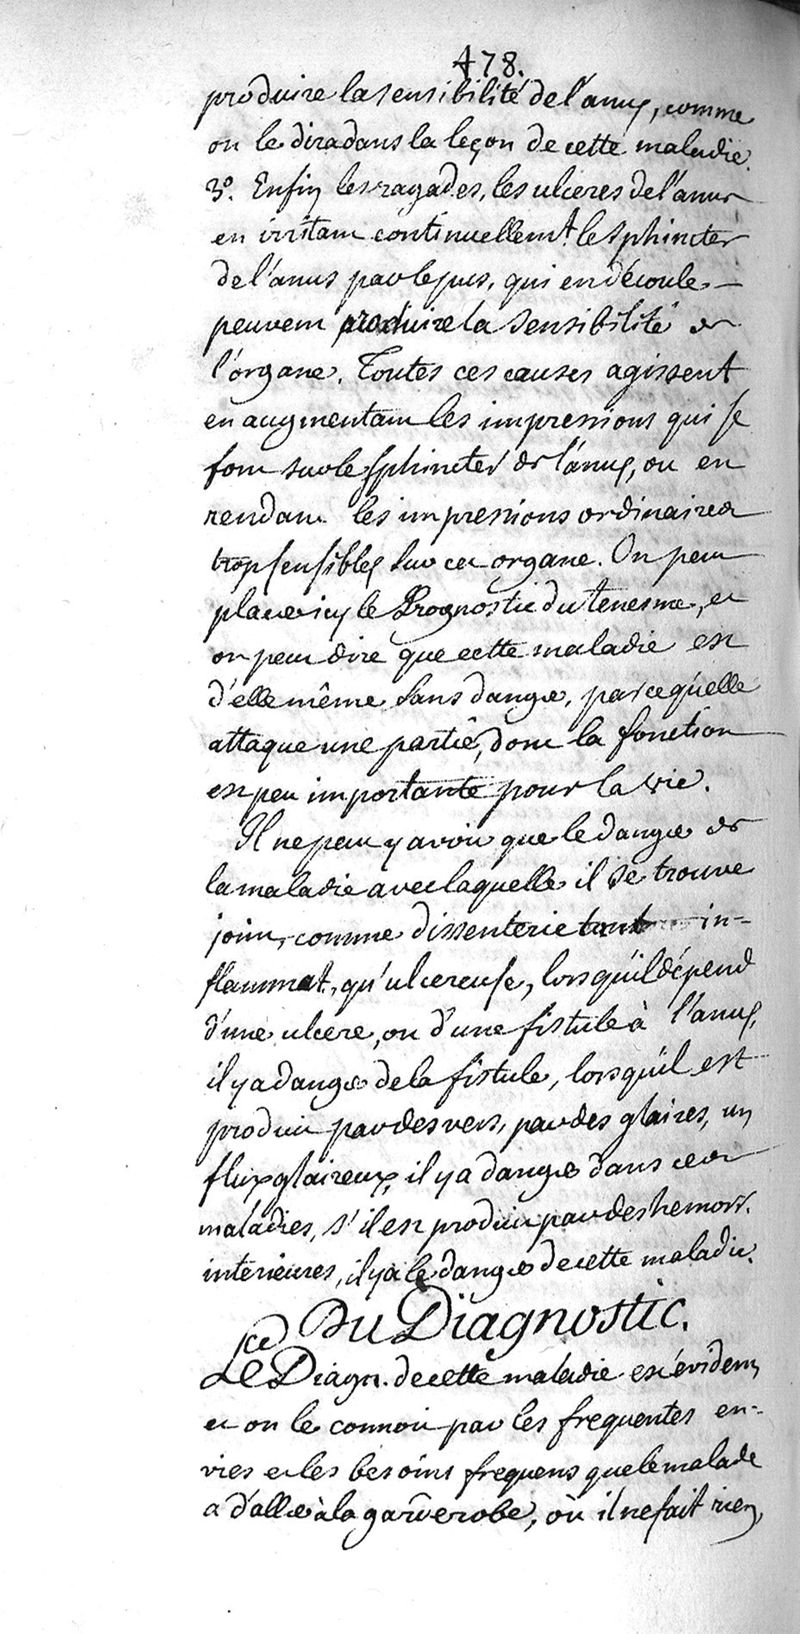 478.
produire la sensibilité de l'anus, comme
on le dira dans la leçon de cette maladie.
3º. Enfin les ragades, les ulceres de l'anus
en irritant continuellemt. le sphincter
de l'anus par le pus, qui en découle
peuvent produire la sensibilité de
l'organe. Toutes ces causes agissent
en augmentant les impressions qui se
font sur le sphincter de l'anus, ou en
rendant les impressions ordinaires
trop sensibles sur cet organe. On peut
placer icy le Prognostic du tenesme, et
on peut dire que cette maladie est
d'elle même sans danger, parcequ'elle
attaque une partie, dont la fonction
est peu importante pour la vie.
Il ne peut y avoir que le danger de
la maladie avec laquelle il se trouve
joint, comme dissenterie tant in-
flammat. qu'ulcereuse, lorsqu'il dépend
d'une ulcere, ou d'une fistule à l'anus,
il y a danger de la fistule, lorsqu'il est
produit par des vers, par des glaires, un
flux glaireux, il y a danger dans ces
maladies, s'il est produit par des hemorr.
interieures, il y a le danger de cette maladie.
Du Diagnostic.
Le Diagn. de cette maladie est évident,
et on le connoit par les frequentes en-
vies et les besoins frequens que le malade
a d'aller à la garderobe, où il ne fait rien,